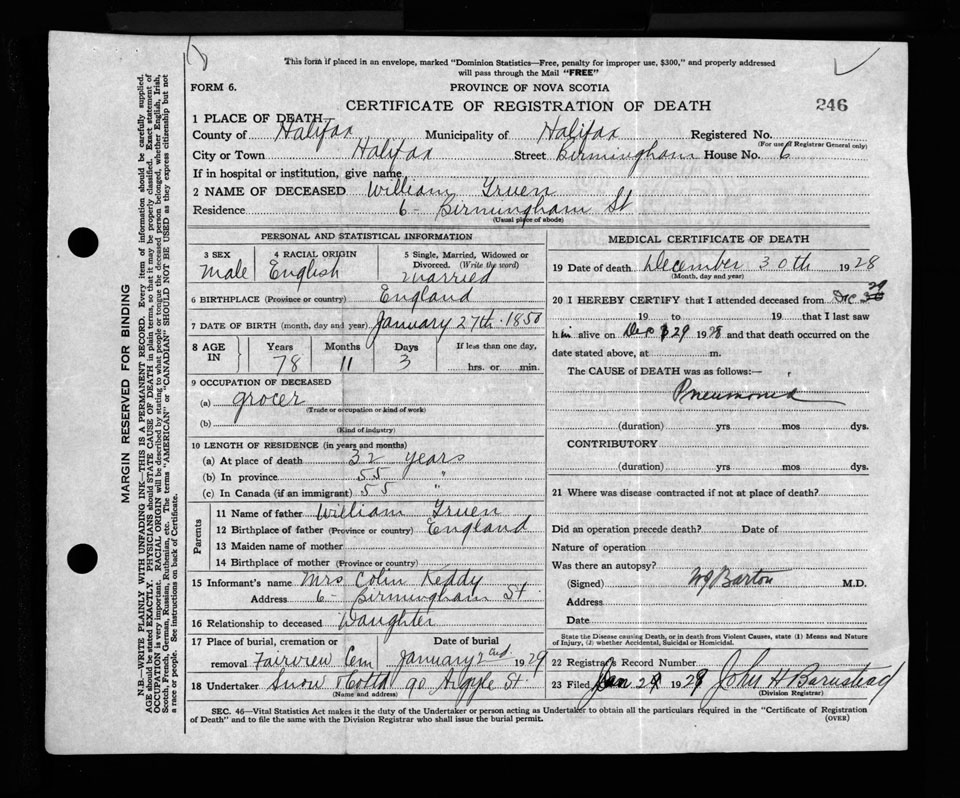 This form if placed in an envelope, marked "Dominion Statistics—Free, penalty for improper use, $300," and properly addressed
will pass through the Mail "FREE"
FORM 6.
PROVINCE OF NOVA SCOTIA
CERTIFICATE OF REGISTRATION OF DEATH
246
1 PLACE OF DEATH
County of Halifax Municipality of Halifax Registered No.
(For use of Registrar General only)
City or Town Halifax Street Birmingham House No. 6
If in hospital or institution, give name
2 NAME OF DECEASED William Gruen
Residence 6- Birmingham St
(Usual place of abode)
PERSONAL AND STATISTICAL INFORMATION
3 SEX Male
4 RACIAL ORIGIN English
5 Single, Married, Widowed or Divorced. (Write the word) Married
6 BIRTHPLACE (Province or country) England
7 DATE OF BIRTH (month, day and year) January 27th 1850
8 AGE IN Years 78 Months 11 Days 3 If less than one day, hrs. or min.
9 OCCUPATION OF DECEASED
(a) grocer
(Trade or occupation or kind of work)
(b)
(Kind of industry)
10 LENGTH OF RESIDENCE (in years and months)
(a) At place of death 32 years
(b) In province 55 "
(c) In Canada (if an immigrant) 55 "
Parents
11 Name of father William Gruen
12 Birthplace of father (Province or country) England
13 Maiden name of mother
14 Birthplace of mother (Province or country)
15 Informant's name Mrs Colin Keddy
Address 6- Birmingham St.
16 Relationship to deceased Daughter
17 Place of burial, cremation or removal Fairview Cem
Date of burial January 2nd 1929
18 Undertaker Snow 90 Argyle St.
(Name and address)
MEDICAL CERTIFICATE OF DEATH
19 Date of death December 30th 1928
(Month, day and year)
20 I HEREBY CERTIFY that I attended deceased from Dec 29
19 to 19 that I last saw
him alive on Dec 29 1928 and that death occurred on
date stated above, at m.
The CAUSE of DEATH was as follows:—
Pneumonia
(duration) yrs mos dys.
CONTRIBUTORY
(duration) yrs mos dys.
21 Where was disease contracted if not at place of death?
Did an operation precede death? Date of
Nature of operation
Was there an autopsy?
(Signed) W J Barton M.D.
Address
Date
State the Disease causing Death, or in death from Violent Causes, state (1) Means and Nature
of Injury, (2) whether Accidental, Suicidal or Homicidal.
22 Registrar's Record Number
23 Filed Jan 2 1929 John H Barnstead
(Division Registrar)
SEC. 46—Vital Statistics Act makes it the duty of the Undertaker or person acting as Undertaker to obtain all the particulars required in the "Certificate of Registration
of Death" and to file the same with the Division Registrar who shall issue the burial permit.
(OVER)
MARGIN RESERVED FOR BINDING
N.B.—WRITE PLAINLY WITH UNFADING INK—THIS IS A PERMANENT RECORD. Every item of information should be carefully supplied.
AGE should be stated EXACTLY. PHYSICIANS should STATE CAUSE OF DEATH in plain terms, so that it may be properly classified. Exact statement of
OCCUPATION is very important. RACIAL ORIGIN will be described by stating to what people or tongue the deceased person belonged, whether English, Irish,
Scotch, French, German, Russian, Ruthenian, etc. The terms "AMERICAN" or "CANADIAN" SHOULD NOT BE USED as they express citizenship but not
a race or people. See instructions on back of Certificate.